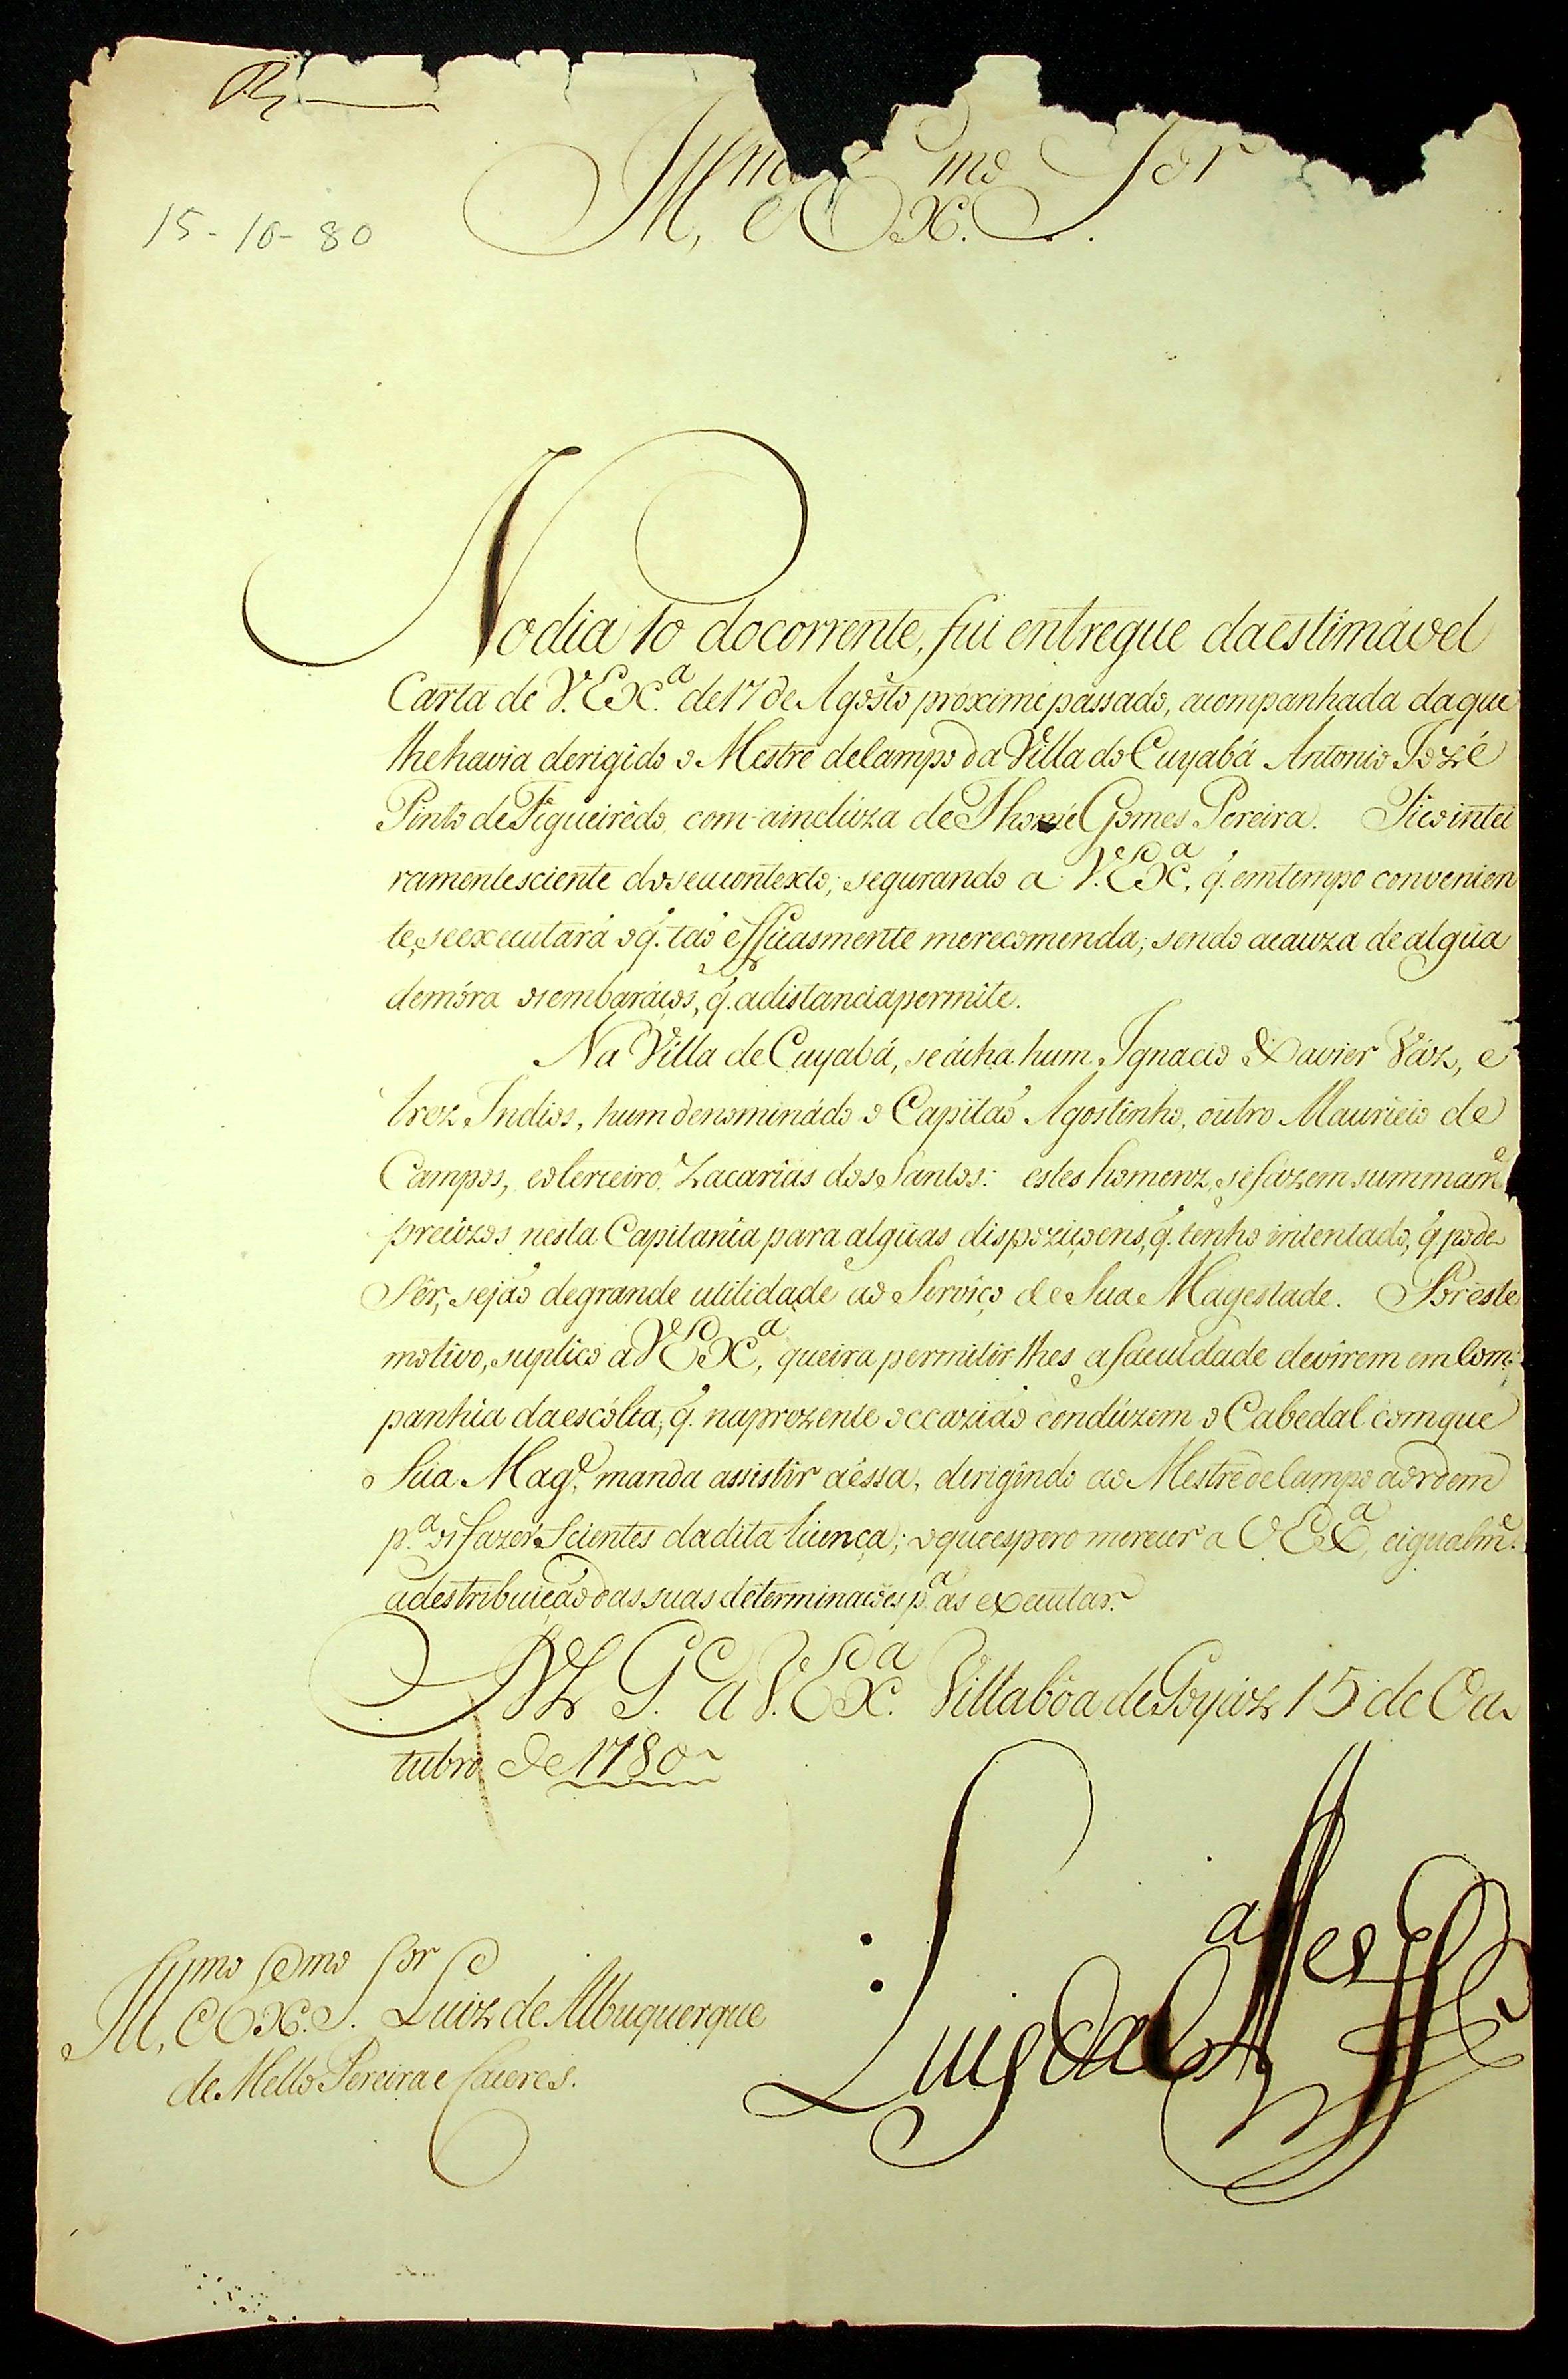 R.
Ill.mo e Ex.mo S.or
15-10-80
No dia 10 do corrente, fui entregue da estimável
Carta de V. Ex.ª de 17 de Agosto proximé passado, acompanhada da que
lhe havia derigido o Mestre de Campo da Villa do Cuyabá Antonio Jozé
Pinto de Figueirêdo, com a incluza de Thomé Gomes Pereira. Fico intei
ramente sciente do seu contexto; segurando a V. Ex.ª, q. em tempo convenien
te, se executará o q. taõ effìcasmente me recomenda; sendo a cauza de algũa
demóra os embaráços, q. a distancia permite.
Na Villa de Cuyabá, se ácha hum Ignacio Xavier Váz, e
trez Indios, hum denominádo o Capitaõ Agostinho, outro Mauricio de
Campos, e o terceiro Zacarias dos Santos: estes homenz, se fazem summam.e
precizos nesta Capitania para algũas dispoziçoens, q. tenho intentado, q. pode
sêr, sejaõ de grande utilidade ao Serviço de Sua Magestade. Por este
motivo, suplico a V. Ex.ª, queira permitir lhes a faculdade de virem em Com-
panhia da escólta, q. na prezente occaziaõ condúzem o Cabedal com que
Sua Mag.e manda assistir a éssa, derigindo ao Mestre de Campo a ordem
p.ª os fazer Scientes da dita licença; o que espero merecer a V. Ex.ª, e igualm.e
a destribuiçaõ das suas determinaçoẽs p.ª as executar.
D.s G.e a V. Ex.ª Villa bôa de Goyáz 15 de Ou
tubro de 1780
Ill.mo e Ex.mo S.or Luiz de Albuquerque
de Mello Pereira e Caceres.
Luis da C.ª